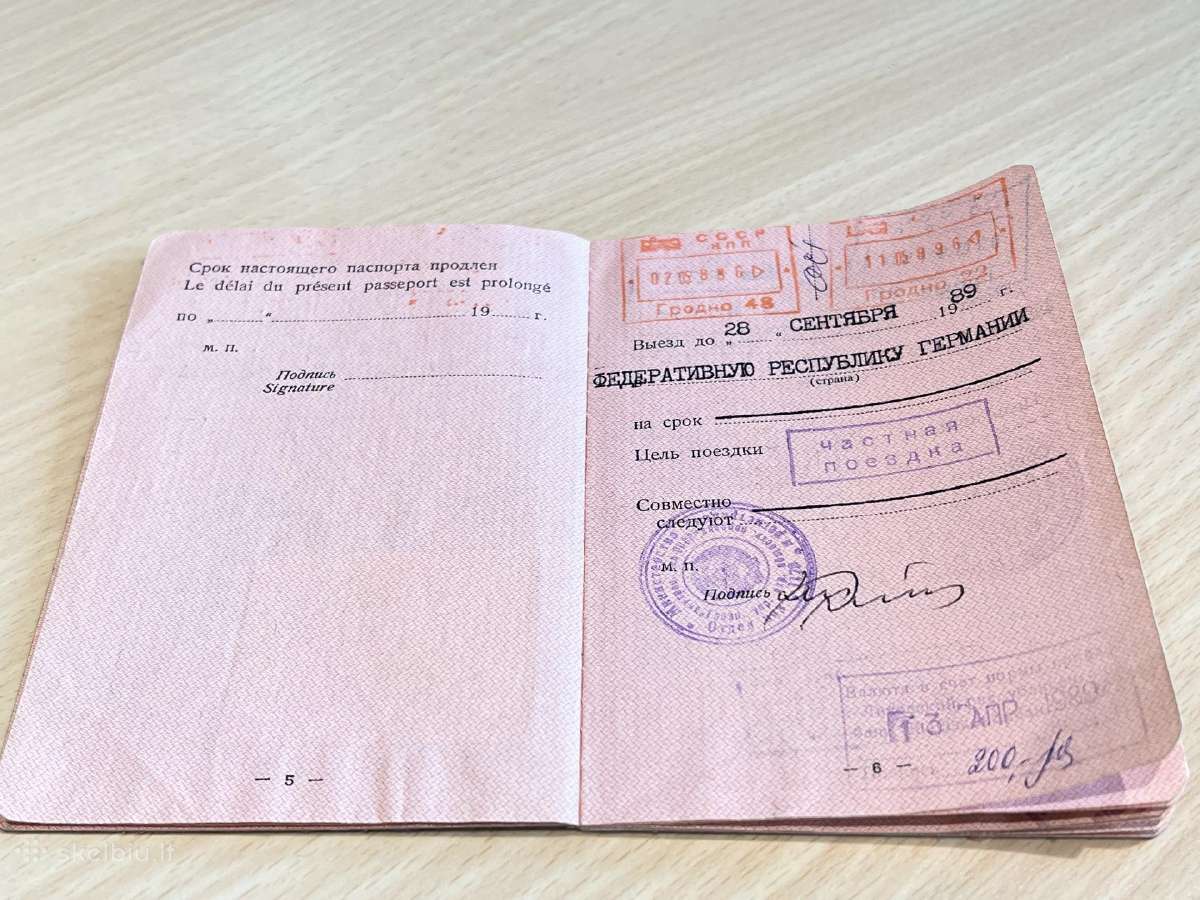 Срок настоящего паспорта продлен
Le délai du présent passeport est prolongé
по „ “ 19 г.
м. п.
Подпись
Signature
— 5 —
СССР
КПП
Гродно 48
Гродно
Выезд до „ 28 “ СЕНТЯБРЯ 19 89 г.
ФЕДЕРАТИВНУЮ РЕСПУБЛИКУ ГЕРМАНИИ
(страна)
на срок
Цель поездки
частная
поездка
Совместно
следуют
м. п.
Подпись
Министерство
Отдел
Валюта в счет
13 АПР 1989
200,-
— 6 —
skelbiu.lt